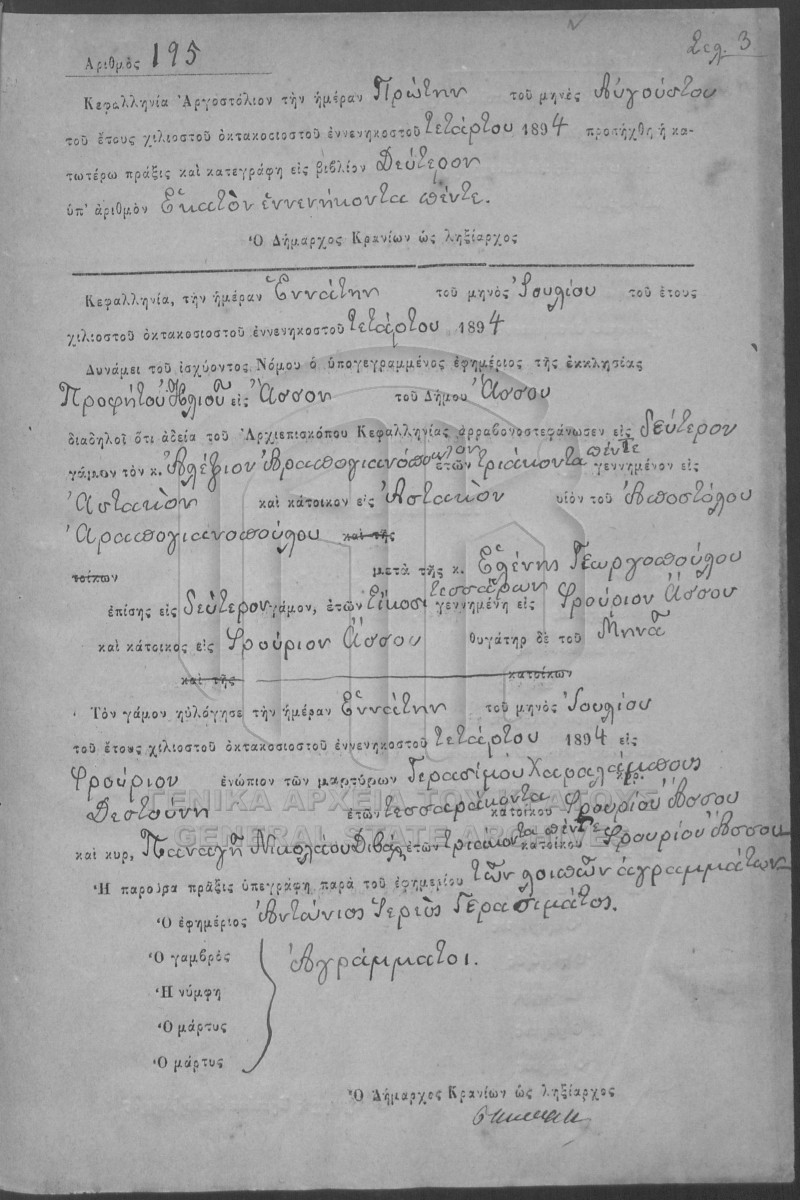 Σελ. 3
Ἀριθμὸς 195
Κεφαλληνία Ἀργοστόλιον τὴν ἡμέραν Πρώτην τοῦ μηνὸς Αὐγούστου
τοῦ ἔτους χιλιοστοῦ ὀκτακοσιοστοῦ ἐννενηκοστοῦ τετάρτου 1894 προσήχθη ἡ κα-
τωτέρω πρᾶξις καὶ κατεγράφη εἰς βιβλίον Δεύτερον
ὑπ' ἀριθμὸν Ἑκατὸν ἐννενήκοντα πέντε.
Ὁ Δήμαρχος Κρανίων ὡς ληξίαρχος
Κεφαλληνία, τὴν ἡμέραν Ἐννάτην τοῦ μηνὸς Ἰουλίου τοῦ ἔτους
χιλιοστοῦ ὀκτακοσιοστοῦ ἐννενηκοστοῦ τετάρτου 1894
Δυνάμει τοῦ ἰσχύοντος Νόμου ὁ ὑπογεγραμμένος ἐφημέριος τῆς ἐκκλησίας
Προφήτου Ἠλιοῦ εἰς Ἄσσον τοῦ Δήμου Ἄσσου
διαδηλοῖ ὅτι ἀδεία τοῦ Ἀρχιεπισκόπου Κεφαλληνίας ἀρραβονοστεφάνωσεν εἰς δεύτερον
γάμον τὸν κ. Ἀλέξιον Ἀραπογιανόπουλον ἐτῶν τριάκοντα πέντε γεννημένον εἰς
Ἀστακὸν καὶ κάτοικον εἰς Ἀστακὸν υἱὸν τοῦ Ἀποστόλου
Ἀραπογιανοπούλου καὶ τῆς
τοίκων μετὰ τῆς κ. Ἑλένης Γεωργοπούλου
ἐπίσης εἰς δεύτερον γάμον, ἐτῶν εἴκοσι τεσσάρων γεννημένη εἰς Φρούριον Ἄσσου
καὶ κάτοικος εἰς Φρούριον Ἄσσου θυγάτηρ δὲ τοῦ Μηνᾶ
καὶ τῆς κατοίκων
Τὸν γάμον ηὐλόγησε τὴν ἡμέραν Ἐννάτην τοῦ μηνὸς Ἰουλίου
τοῦ ἔτους χιλιοστοῦ ὀκτακοσιοστοῦ ἐννενηκοστοῦ τετάρτου 1894 εἰς
Φρούριον ἐνώπιον τῶν μαρτύρων Γερασίμου Χαραλάμπους κυρ.
Δεστούνη ἐτῶν τεσσαράκοντα κατοίκου Φρουρίου Ἄσσου
καὶ κυρ, Παναγῆ Νικολάου Διβάρη ἐτῶν τριάκοντα πέντε κατοίκου Φρουρίου Ἄσσου
Ἡ παροῦσα πρᾶξις ὑπεγράφη παρὰ τοῦ ἐφημερίου τῶν λοιπῶν ἀγραμμάτων
Ὁ ἐφημέριος Ἀντώνιος Ἱερεὺς Γερασιμάτος.
Ὁ γαμβρὸς Ἀγράμματοι.
Ἡ νύμφη
Ὁ μάρτυς
Ὁ μάρτυς
Ὁ Δήμαρχος Κρανίων ὡς ληξίαρχος
ΓΕΝΙΚΑ ΑΡΧΕΙΑ ΤΟΥ ΚΡΑΤΟΥΣ
GENERAL STATE ARCHIVES